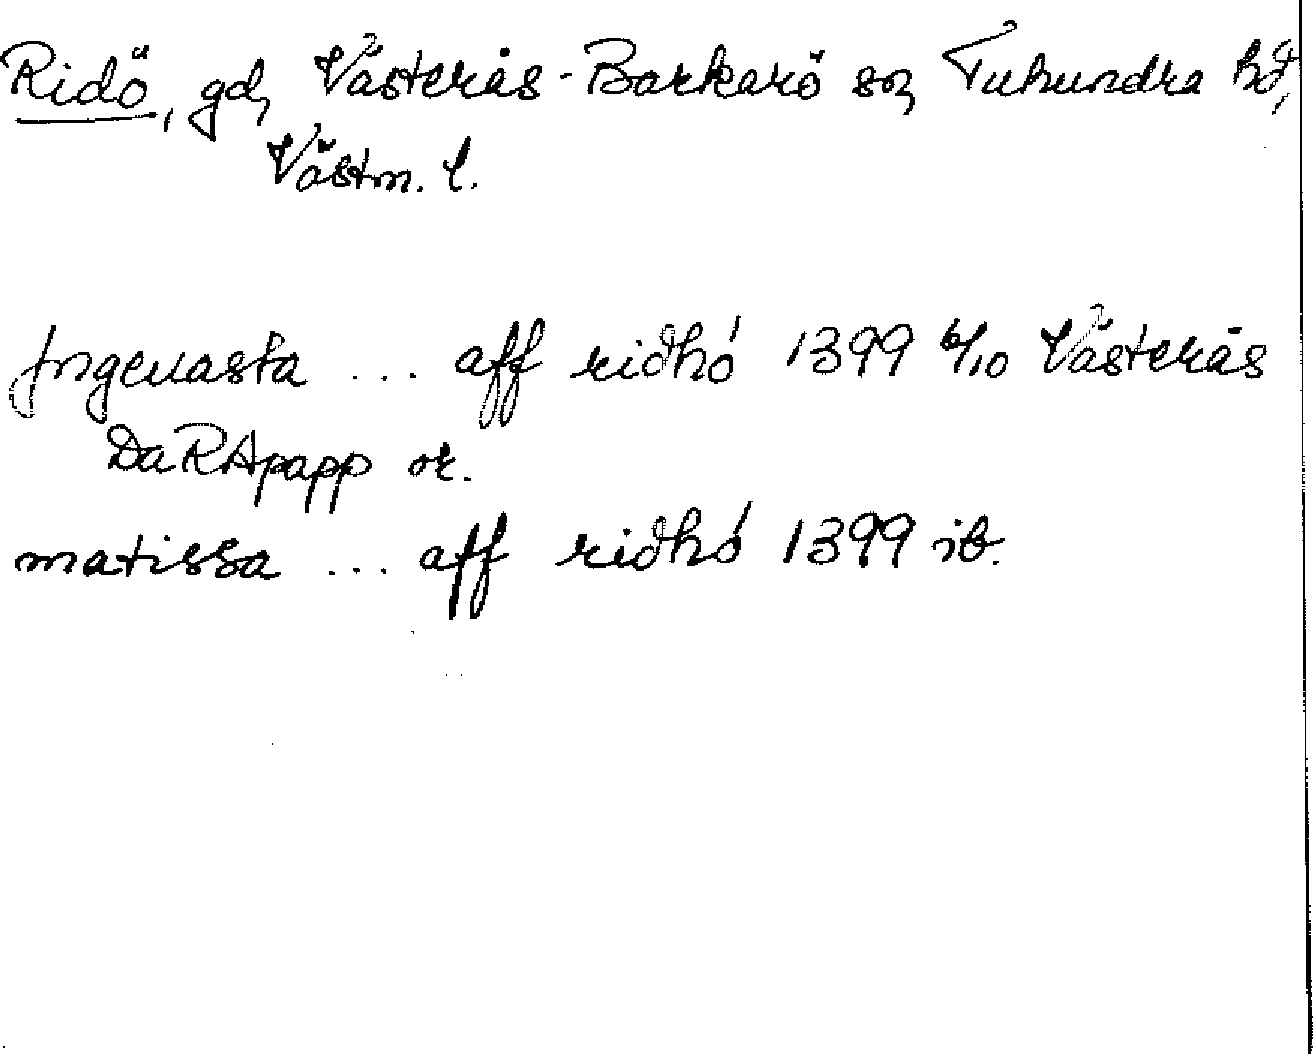 Ridö, gd, Västerås-Barkarö sn, Tuhundra hd,
Västm. l.
jngeuasta ... aff ridhó 1399 6/10 Västerås
DaRApapp or.
matissa ... aff ridhó 1399 ib.